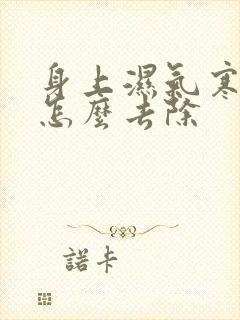 身上濕氣寒
怎麼去除
諾卡